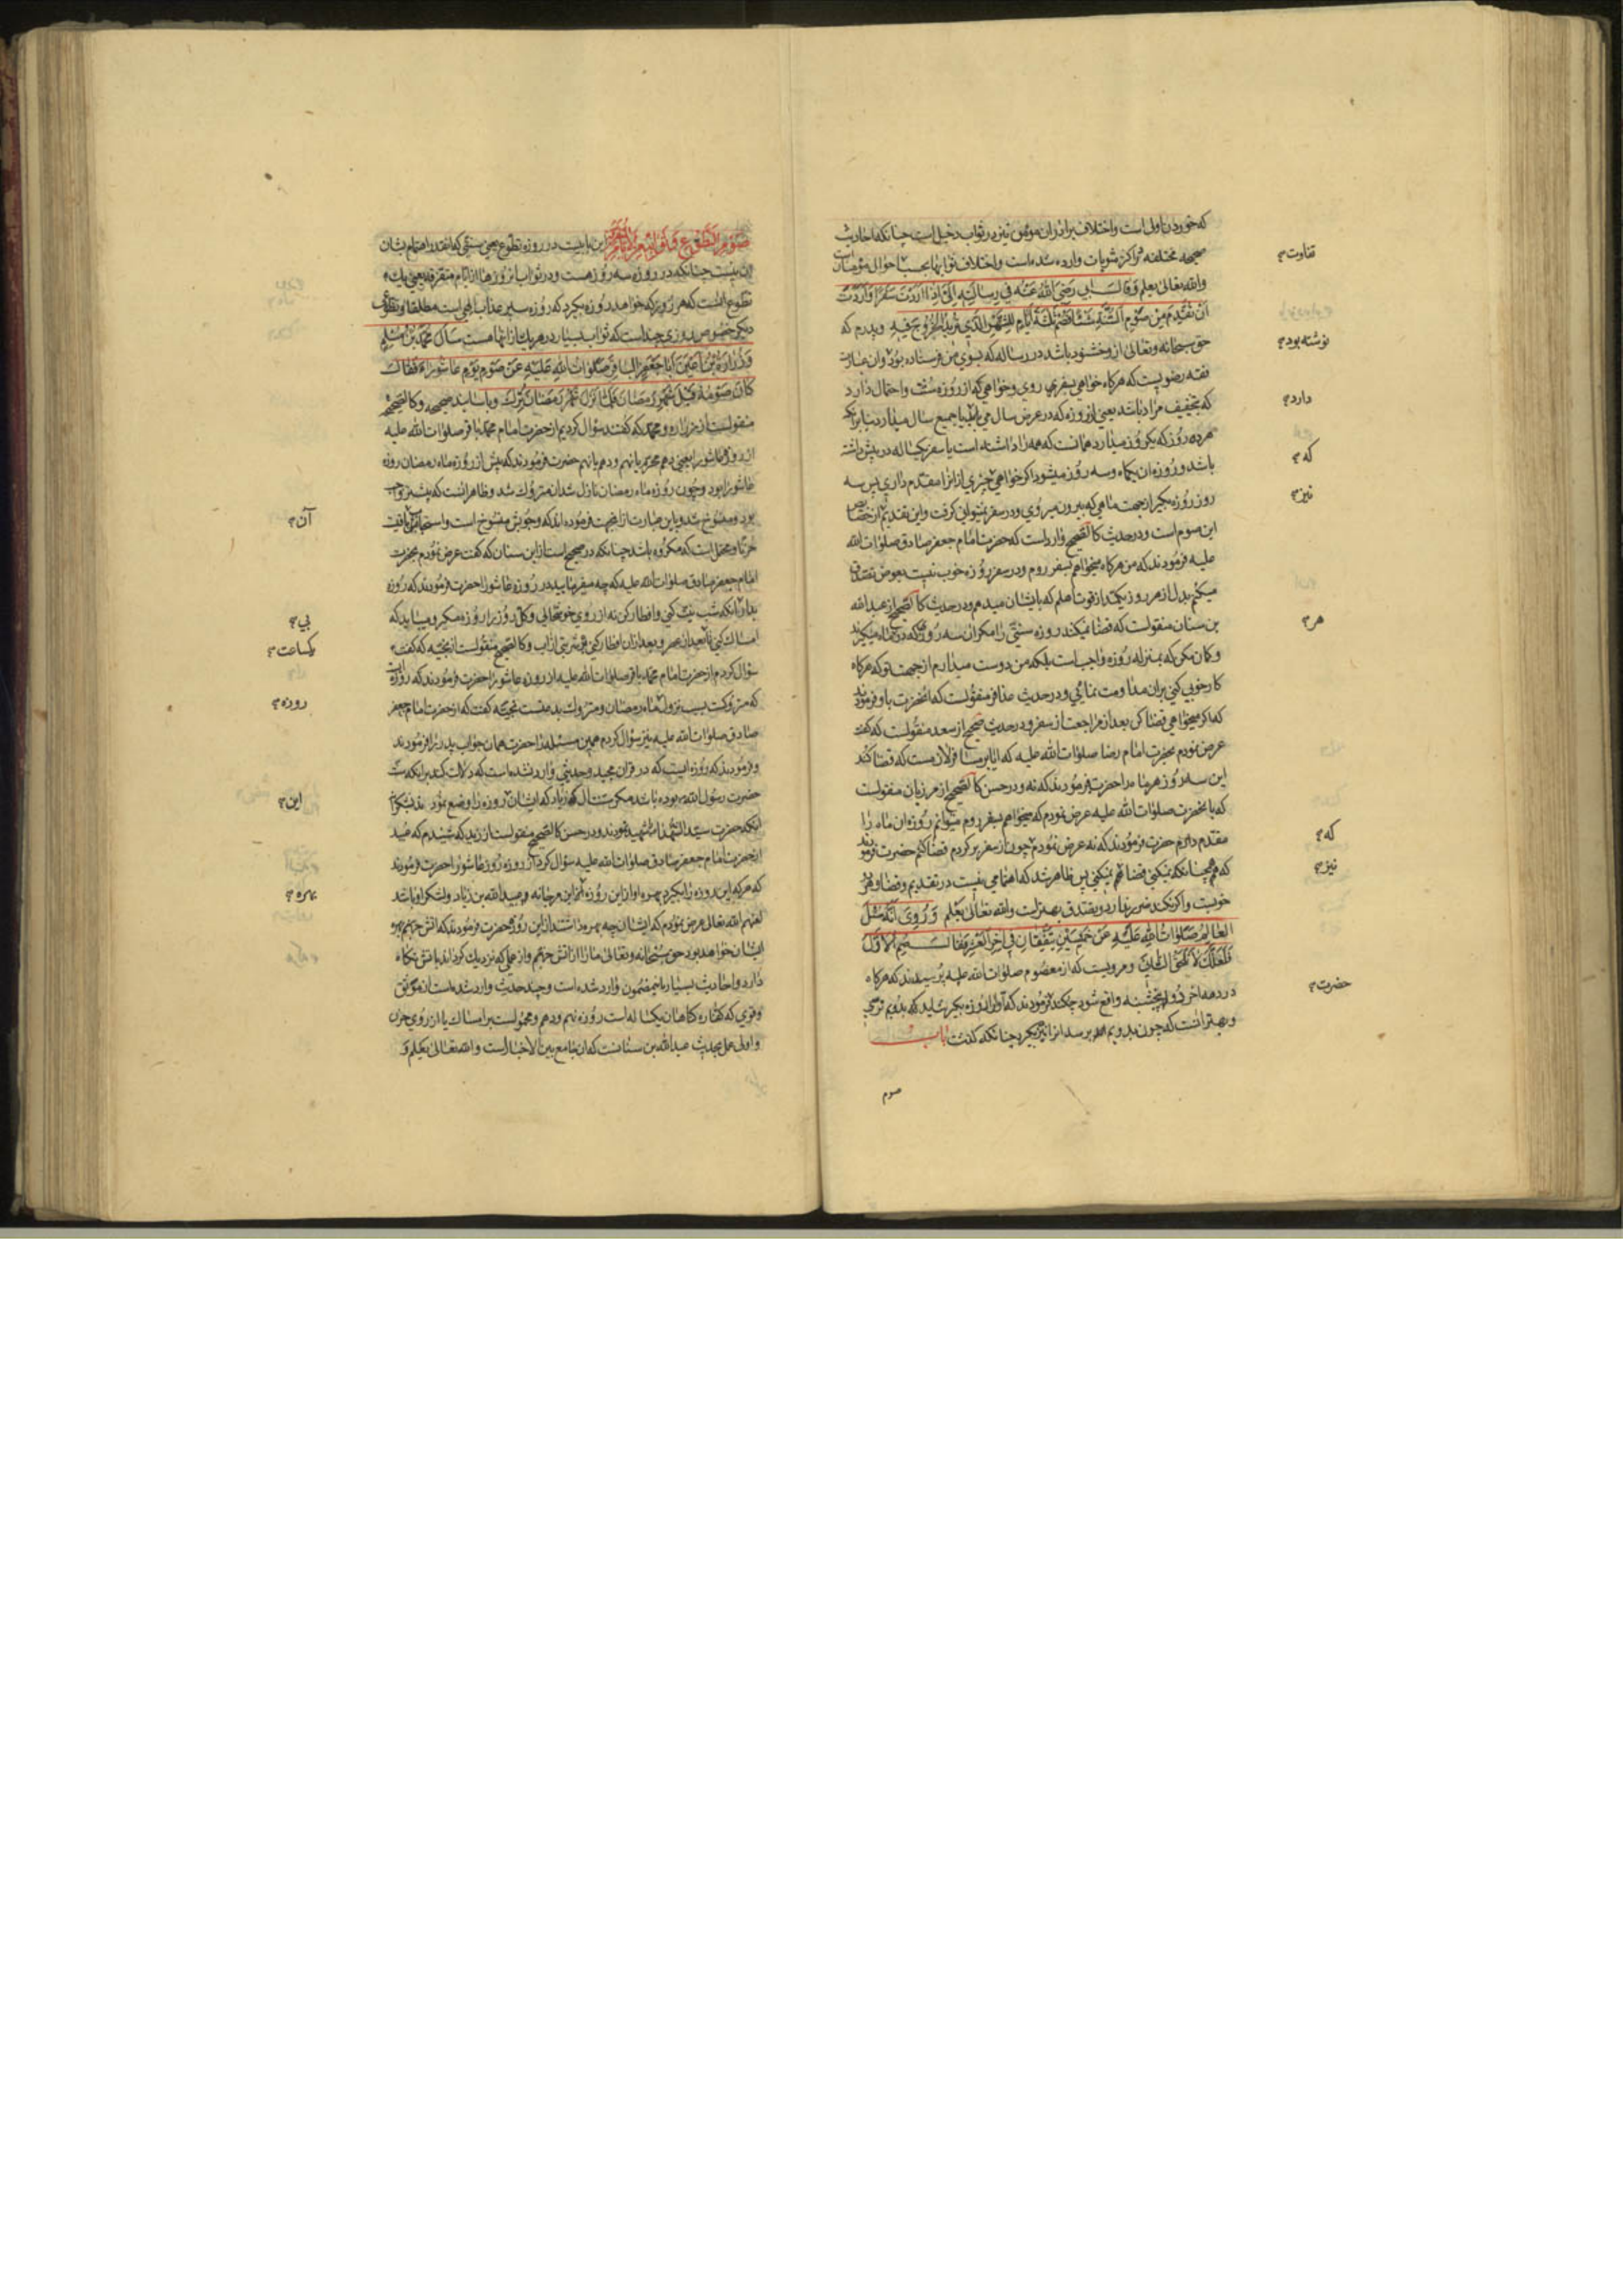 که خوردن اولی است و اختلاف برادران مومن نیز در ثواب دخیل است چنانکه احادیث
صحیحه مختلفه در اکثر مثوبات وارد شده است و اختلاف ثوابها بحسب احوال مؤمنان است
والله تعالی یعلم وَقَالَ اَبی رَضِیَ اللهُ عَنْهُ فی رِسالَتِهِ اِلَیَّ اِذا اَرَدْتَ سَفَرًا وَاَرَدْتَ
اَنْ تُقَدِّمَ مِنْ صَوْمِ السَّنَةِ شَیْئًا فَصُمْ ثَلٰثَةَ اَیّامٍ لِلشَّهْرِ الَّذی تُریدُ الْخُرُوجَ فیهِ و پدرم که
حق سبحانه و تعالی ازو خشنود باشد در رساله که بسوی من فرستاده بود و ان عبارت
فقه رضویست که هرکاه خواهی بسفری روی و خواهی که از روزه سنت و احتمال دارد
که بتخفیف مراد باشد یعنی از روزه که در عرض سال می یا جمیع سال میدارد بنابرانکه
هر ده روز که یکروز میدارد همانست که همه را داشته است یا سفر یکساله در پیش داشته
باشد و روزه ان یکماه و سه روز میشود اکر خواهی چیزی از انرا مقدم داری پس سه
روز روزه بکیر از جهت ماهی که بیرون میروی و در سفر نمیتوانی کرفت و این تقدیم از خصایص
این صوم است و در حدیث کالصحیح وارد است که حضرت امام جعفر صادق صلوات الله
علیه فرمودند که من هرکاه میخواهم بسفر روم و در سفر روزه خوب نیست بعوض تصدق
میکنم بدل از هر روز یکمد از قوت اهلم که بایشان میدهم و در حدیث کالصحیح از عبدالله
بن سنان منقولست که قضا نمیکند روزه سنتی را مکر ان سه روزی که در هر ماه میکیرند
و کمان مکن که بمنزله روزه واجب است بلکه من دوست میدارم از جهت تو که هرکاه
کار خوبی کنی بران مداومت نمائی و در حدیث عذافر منقولست که انحضرت باو فرمودند
که اکر میخواهی قضا کن بعد از مراجعت از سفر و در حدیث صحیح از سعد منقولست که کفت
عرض نمودم بحضرت امام رضا صلوات الله علیه که ایا بر مسافر لازمست که قضا کند
این سه روز هر ماه را حضرت فرمودند که نه و در حسن کالصحیح از مرزبان منقولست
که بانحضرت صلوات الله علیه عرض نمودم که میخواهم بسفر روم میتوانم روزه ان ماه را
مقدم دارم حضرت فرمودند که نه عرض نمودم چون از سفر برکردم قضا کنم حضرت فرمودند
که نه همچنانکه نمیکنی قضا هم نمیکنی پس ظاهر شد که اهتمامی نیست در تقدیم و قضا و هر دو
خوبست و اکر نکند ضرر ندارد و تصدق بهتر است والله تعالی یعلم وَرُوِیَ اَنَّهُ سُئِلَ
العالِمُ صَلَواتُ اللهِ عَلَیْهِ عَنْ خَمیسَیْنِ یَتَّفِقانِ فی اخِرِ الْعَشْرِ فَقالَ صُمِ الْاَوَّلَ
فَلَعَلَّکَ لا تَلْحَقُ الثّانِیَ و مرویست که از معصوم صلوات الله علیه پرسیدند که هرکاه
در دهه اخر دو پنجشنبه واقع شود چکند فرمودند که اول را روزه بکیر شاید که بدویم نرسی
و بهتر انست که چون بدویم هم برسد انرا نیز بکیرد چنانکه کذشت باب
صوم
تفاوت
نوشته بود
دارد
که
نیز
هر
که
نیز
حضرت
صَوْمِ التَّطَوُّعِ وَثَوابِهِ مِنَ الْاَیّامِ الْمُتَفَرِّقَةِ این بابیست در روزه تطوع یعنی سنتی که انقدر اهتمام بشان
ان نیست چنانکه در روزه سه روز هست و در ثواب انروزها از ایام متفرقه یعنی یک
تطوع انست که هر روز که خواهد روزه بکیرد که روزه سپر عذاب الهی است مطلقا و تطوعی
دیکر خصوص روزی چند است که ثواب بسیار در هر یک از انها هست سَاَلَ مُحَمَّدُ بْنُ مُسْلِمٍ
وَزُرارَةُ بْنُ اَعْیَنَ اَبا جَعْفَرٍ الْباقِرَ صَلَواتُ اللهِ عَلَیْهِ عَنْ صَوْمِ یَوْمِ عاشُوراءَ فَقالَ
کانَ صَوْمُهُ قَبْلَ شَهْرِ رَمَضانَ فَلَمّا نَزَلَ شَهْرُ رَمَضانَ تُرِکَ و باسانید صحیحه و کالصحیح
منقولست از زراره و محمد که کفتند سؤال کردیم از حضرت امام محمد باقر صلوات الله علیه
از روزه عاشورا یعنی دهم محرم یا نهم و دهم یا نهم حضرت فرمودند که پیش از روزه ماه رمضان روزه
عاشورا بود و چون روزه ماه رمضان نازل شد ان متروک شد و ظاهر انست که پیشتر واجب
بود و منسوخ شد و باین عبارت از انجهت فرموده اند که وجوبش منسوخ است و استحبابش باقیست
حزنا و محتمل است که مکروه باشد چنانکه در صحیح است از ابن سنان که کفت عرض نمودم بحضرت
امام جعفر صادق صلوات الله علیه که چه میفرمایید در روزه عاشورا حضرت فرمودند که روزه
بدار انکه شب نیت کنی و افطار کن نه از روی خوشحالی و کل روز را روزه مکیر و میباید که
امساک کنی تا بعد از عصر و بعد از ان افطار کنی بشربتی از اب و کالصحیح منقولست از نجیه که کفت
سؤال کردم از حضرت امام محمد باقر صلوات الله علیه از روزه عاشورا حضرت فرمودند که روزه ایست
که متروکست بسبب نزول ماه رمضان و متروک بدعتست نجیه کفت که از حضرت امام جعفر
صادق صلوات الله علیه نیز سؤال کردم همین مسئله را حضرت همان جواب پدر را فرمودند
و فرمودند که روزه ایست که در قران مجید و حدیثی وارد نشده است که دلالت کند برانکه سنت
حضرت رسول الله بوده باشد مکر سنت ال زیاد که ایشان روزه را وضع نمودند بشکرانه
انکه حضرت سید الشهدا را شهید نمودند و در حسن کالصحیح منقولست از زید که شنیدم که عبید
از حضرت امام جعفر صادق صلوات الله علیه سؤال کرد از روزه روز عاشورا حضرت فرمودند
که هر که این روزه را بکیرد بهره او از این روزه بهره ابن مرجانه و عبیدالله بن زیاد و لشکر او باشد
لعنهم الله تعالی عرض نمودم که ایشان چه بهره داشتند از این روز حضرت فرمودند که اتش جهنم بهره
ایشان خواهد بود حق سبحانه و تعالی ما را از اتش جهنم و از عملی که نزدیک کرداند باتش نکاه
دارد و احادیث بسیار باینمضمون وارد شده است و چند حدیث وارد شده است از موثق
و قوی که کفاره کناهان یکساله است روزه نهم و دهم و محمولست بر امساک یا از روی حزن
و اولی عمل بحدیث عبدالله بن سنانست که ان جامع بین الاخبار است والله تعالی یعلم و
آن
بی
یکساعت
روزه
این
بهره